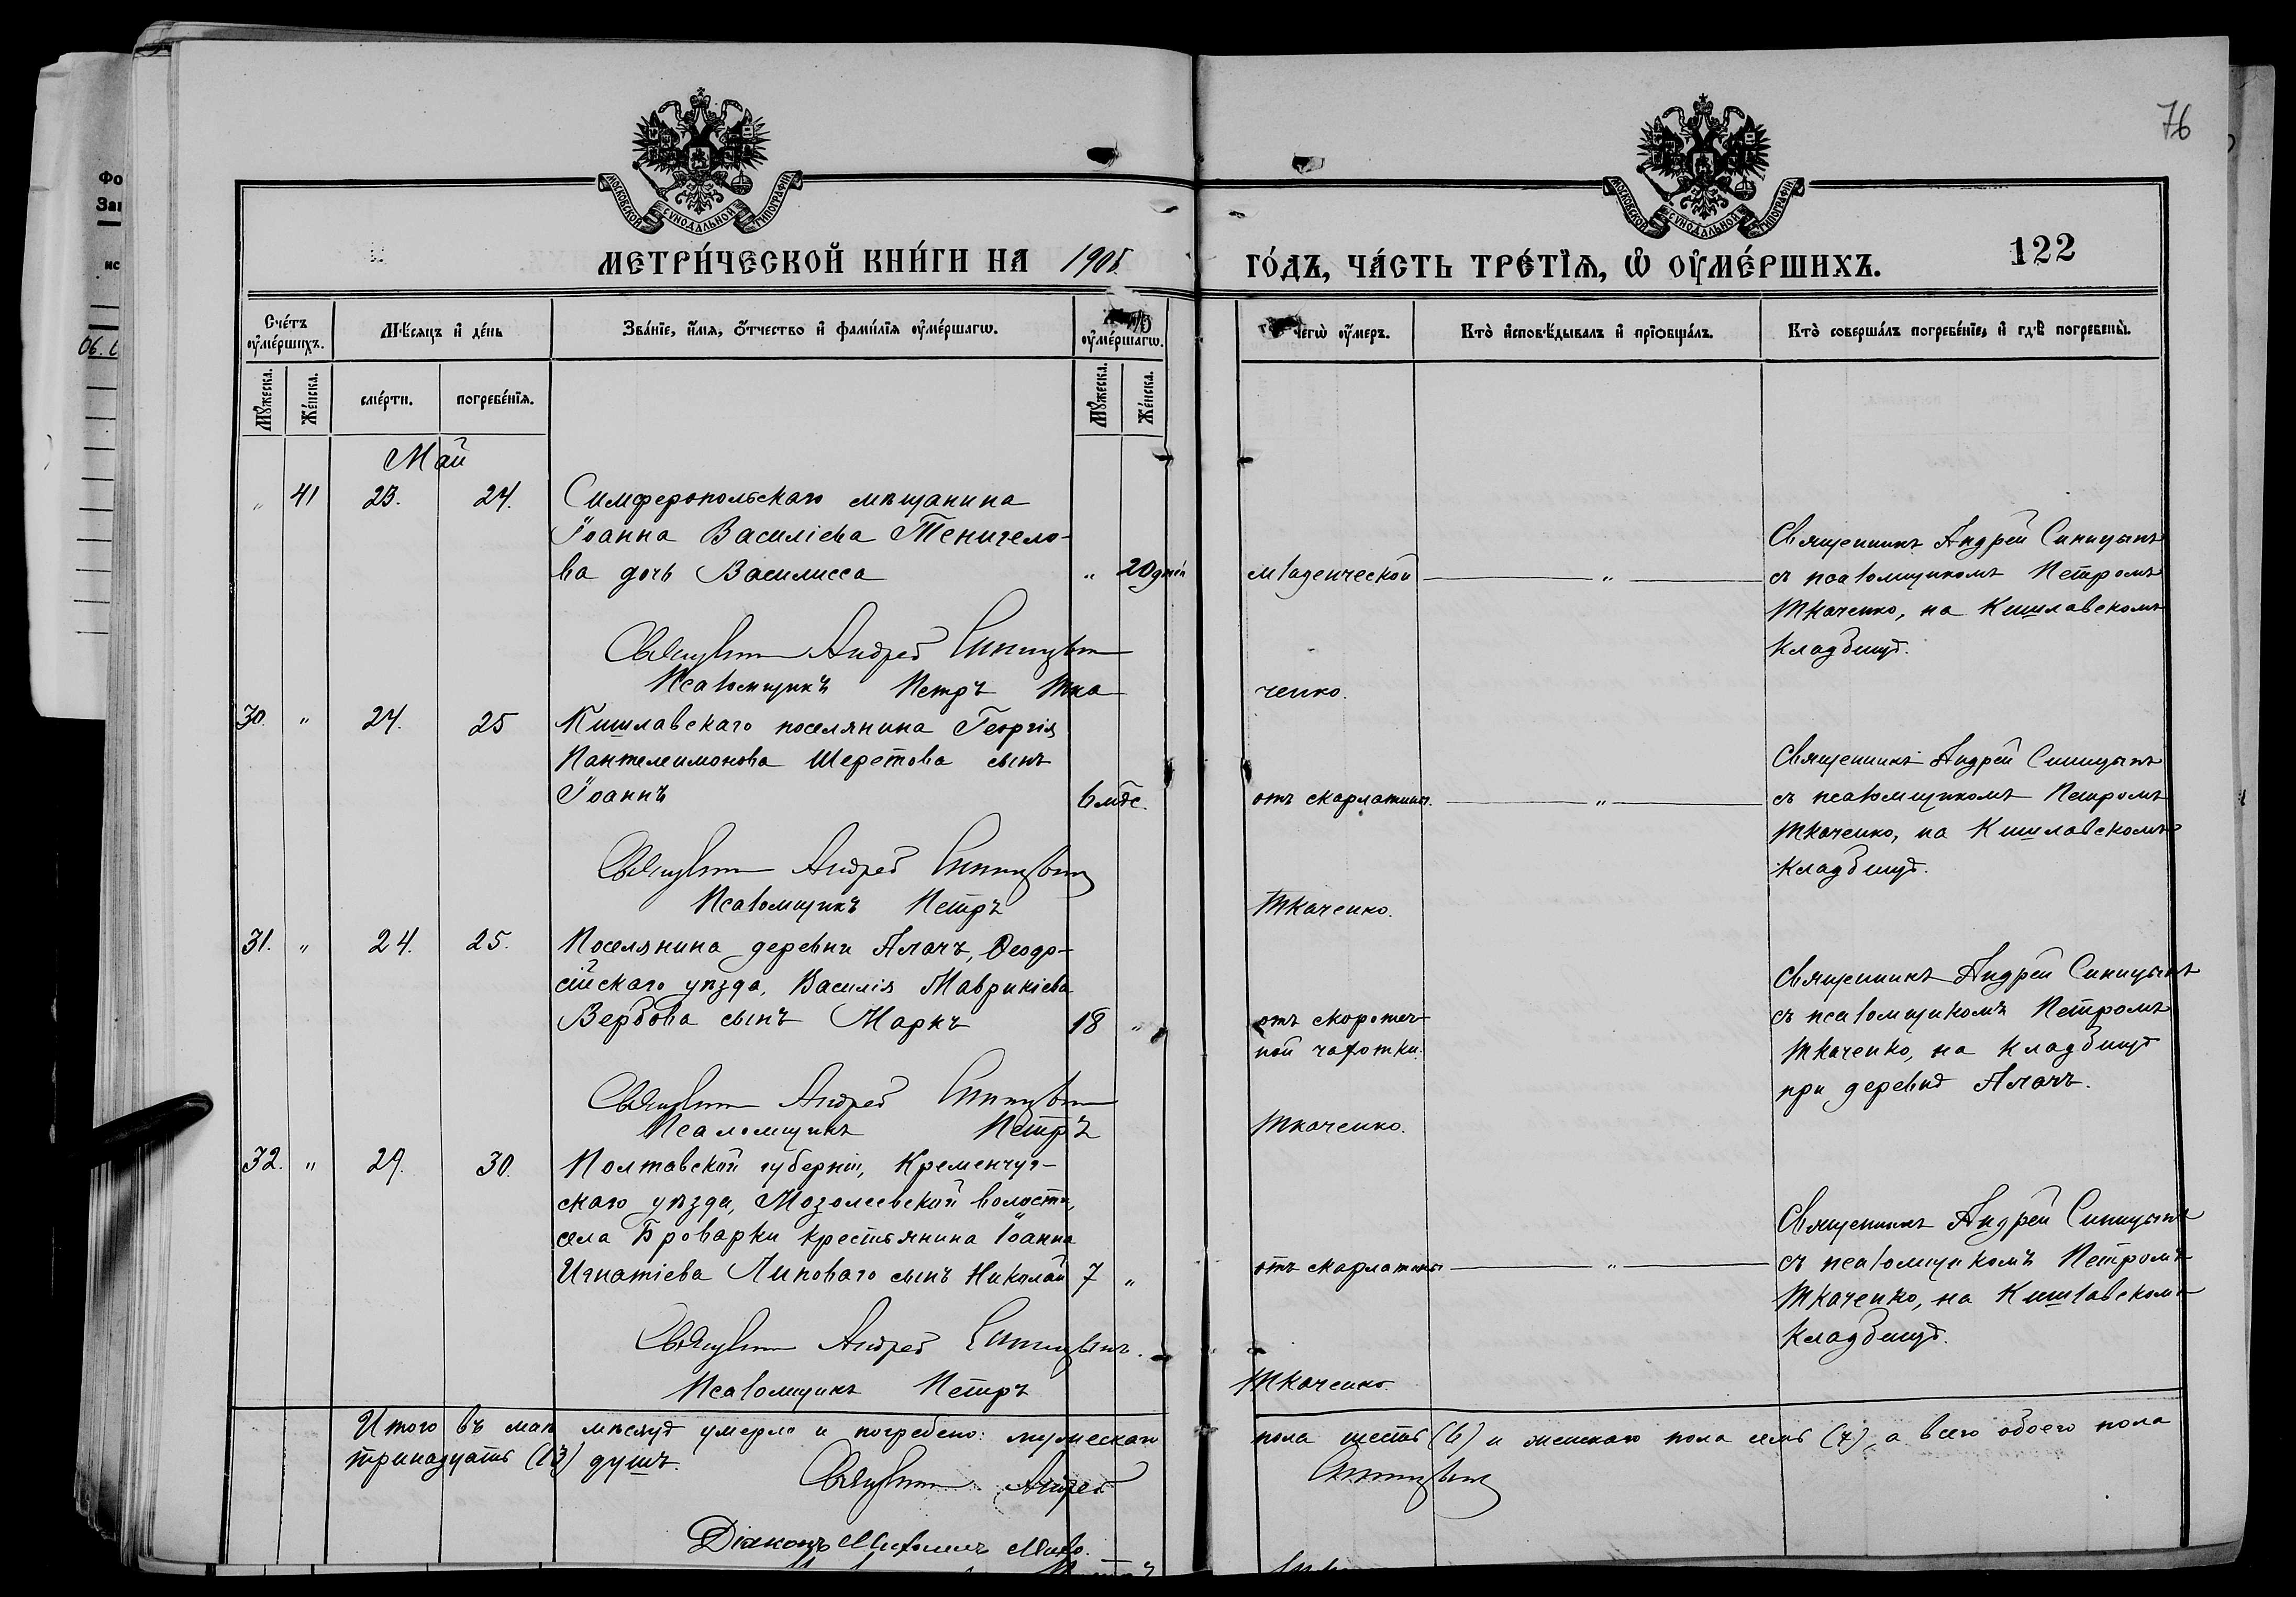 76
МОСКОВСКОЙ СУНОДАЛЬНОЙ ТИПОГРАФІИ
МОСКОВСКОЙ СУНОДАЛЬНОЙ ТИПОГРАФІИ
МЕТРИ́ЧЕСКОЙ КНИ́ГИ НА 1905
ГО́ДЪ, ЧА́СТЬ ТРЕ́ТІѦ, Ѡ҆ ОУ҆МЕ́РШИХЪ.
122
Сче́тъ оу҆ме́ршихъ.
Мѣ́сяцъ и҆ де́нь
Зва́нїе, и҆́мѧ, ѻ҆́тчество и҆ фами́лїѧ оу҆ме́ршагѡ.
оу҆ме́ршагѡ.
чегѡ̀ оу҆́меръ.
Кто̀ и҆сповѣ́дывалъ и҆ прїѻбща́лъ.
Кто̀ соверша́лъ погребе́нїе, и҆ гдѣ̀ погребены̀.
Мꙋ́жеска.
Же́нска.
сме́рти.
погребе́нїѧ.
Мꙋ́жеска.
Же́нска.
Май
„ 41 23. 24. Симферопольскаго мѣщанина
Іоанна Василіева Теничело-
ва дочь Василисса „ 20 дней
младенческой „
Священникъ Андрей Синицынъ
съ псаломщикомъ Петромъ
Ткаченко, на Кишлавскомъ
кладбищѣ.
Священникъ Андрей Синицынъ
Псаломщикъ Петръ Тка
ченко.
30. „ 24. 25 Кишлавскаго поселянина Георгія
Пантелеимонова Шеретова сынъ
Іоаннъ 6 мѣс.
отъ скарлатины. „
Священникъ Андрей Синицынъ
съ псаломщикомъ Петромъ
Ткаченко, на Кишлавскомъ
кладбищѣ.
Священникъ Андрей Синицынъ
Псаломщикъ Петръ
Ткаченко.
31. „ 24. 25. Поселянина деревни Алачъ, Ѳеодо-
сійскаго уѣзда, Василія Маврикіева
Вербова сынъ Маркъ 18 „
отъ скоротеч-
ной чахотки.
Священникъ Андрей Синицынъ
съ псаломщикомъ Петромъ
Ткаченко, на кладбищѣ
при деревнѣ Алачъ.
Священникъ Андрей Синицынъ
Псаломщикъ Петръ
Ткаченко.
32. „ 29. 30. Полтавской губерніи, Кременчуг-
скаго уѣзда, Мозолеевской волости,
села Броварки крестьянина Іоанна
Игнатіева Липоваго сынъ Николай 7 „
отъ скарлатины „
Священникъ Андрей Синицынъ
съ псаломщикомъ Петромъ
Ткаченко, на Кишлавскомъ
кладбищѣ.
Священникъ Андрей Синицынъ.
Псаломщикъ Петръ
Ткаченко.
Итого въ маѣ мѣсяцѣ умерло и погребено: мужескаго пола шесть (6) и женскаго пола семь (7), а всего обоего пола
тринадцать (13) душъ.
Священникъ Андрей Синицынъ
Діаконъ Михаилъ